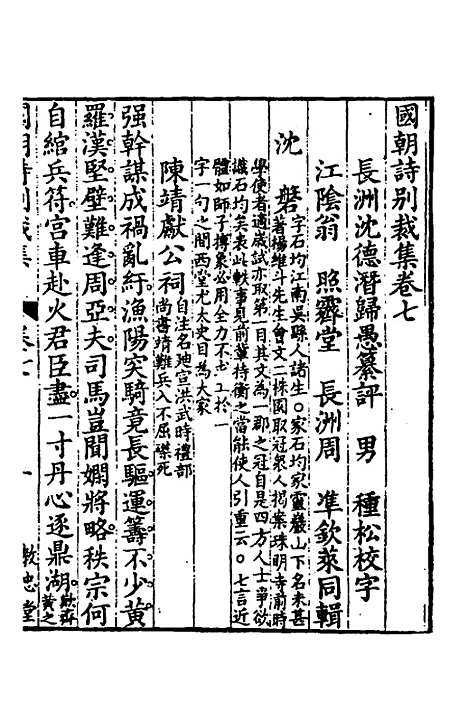 國朝詩別裁集卷七
長洲沈德潛歸愚纂評 男 種松校字
江陰翁 照霽堂 長洲周 準欽萊同輯
沈 磐
字石均江南吳縣人諸生○家石均家靈巖山下名未甚
著楊維斗先生會文二株園取冠眾人揭案珠明寺前時
學使者適歲試亦取第一目其文為一郡之冠自是四方人士爭欲
識石均矣表此軼事見前輩持衡之當能使人引重云○七言近
體如師子搏象必用全力不
工於一
字一句之間西堂尤太史目為大家
陳靖獻公祠
自注名迪宣洪武時禮部
尚書靖難兵入不屈磔死
强幹謀成禍亂紆漁陽突騎竟長驅運籌不少黃
羅漢堅壁難逢周亞夫司馬豈聞嫻將略秩宗何
自綰兵符宮車赴火君臣盡一寸丹心逐鼎湖
黃之
國朝詩別裁集 卷七 一 教忠堂